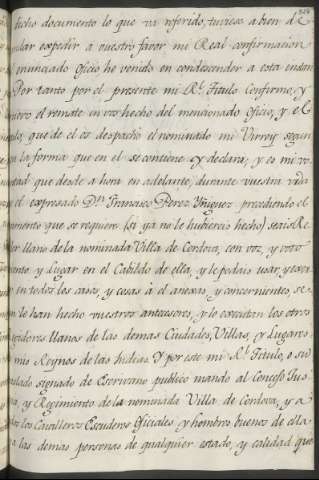 hicho documento lo que va referido, tuviese a bien de
dular expedir a vuestro favor mi Real confirmacion
enunciado Oficio he venido en condescender a esta instan
Por tanto por el presente mi Rl. Titulo Confirmo, y
nuevo el remate en vos hecho del mencionado Oficio, y el
lo, que de el os despachó el nominado mi Virrey segun
la forma que en el se contiene y declara; y es mi vo
tad que desde ahora en adelante, durante vuestra vida
el expresado Dn. Francisco Perez Yñiguez precediendo el
mento que se requiere (si ya no le hubiereis hecho) seais Re
dor llano de la nominada Villa de Cordova, con voz, y voto
ento, y lugar en el Cabildo de ella, y le podais usar, y exer
en todos los casos, y cosas à el anexas, y concernientes, se
lo han hecho vuestros antecesores, y lo executan los otros
idores llanos de las demas Ciudades, Villas, y Lugares
mis Reynos de las Indias. Y por este mi Rl. Titulo, o su
slado signado de Escrivano publico mando al Concejo Jus
ia, y Regimiento de la nominada Villa de Cordova, y a
dos los Cavalleros Escuderos Oficiales y hombres buenos de ella
a las demas personas de qualquier estado, y calidad que